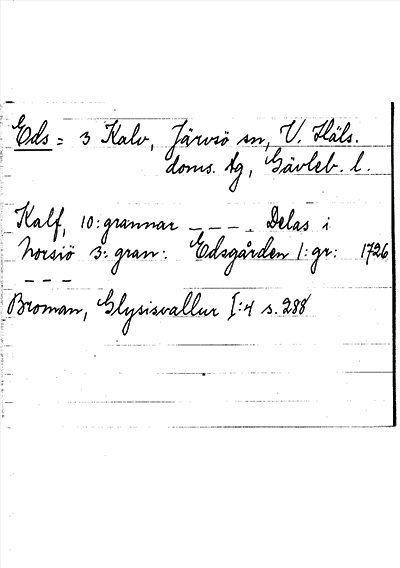 Eds = 3 Kalv, Järvsö sn, V. Häls.
doms. tg, Gävleb. l.
Kalf, 10: grannar _ _ _ _ Delas i
Norsiö 3: gran: Edsgården 1: gr: 1726
_ _ _
Broman, Glysisvallur I:4 s. 288